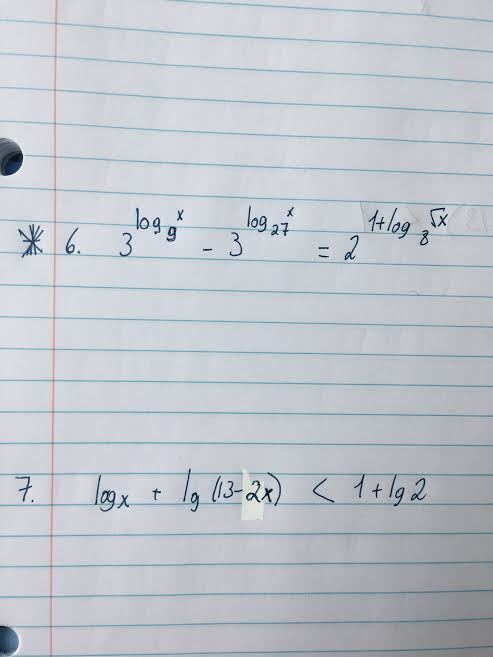 * 6. 3^(log₉ x) - 3^(log₂₇ x) = 2^(1+log₈ √x)
7. log x + lg (13-2x) < 1 + lg 2